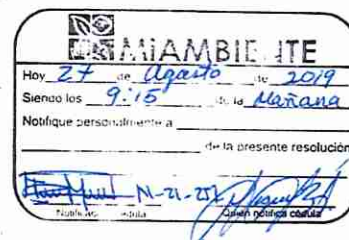 MiAMBIENTE
Hoy 27 de Agosto de 2019
Siendo las 9:15 de la Mañana
Notifique personalmente a
de la presente resolución
N-21-
Notificado Cédula Quien notifica cédula